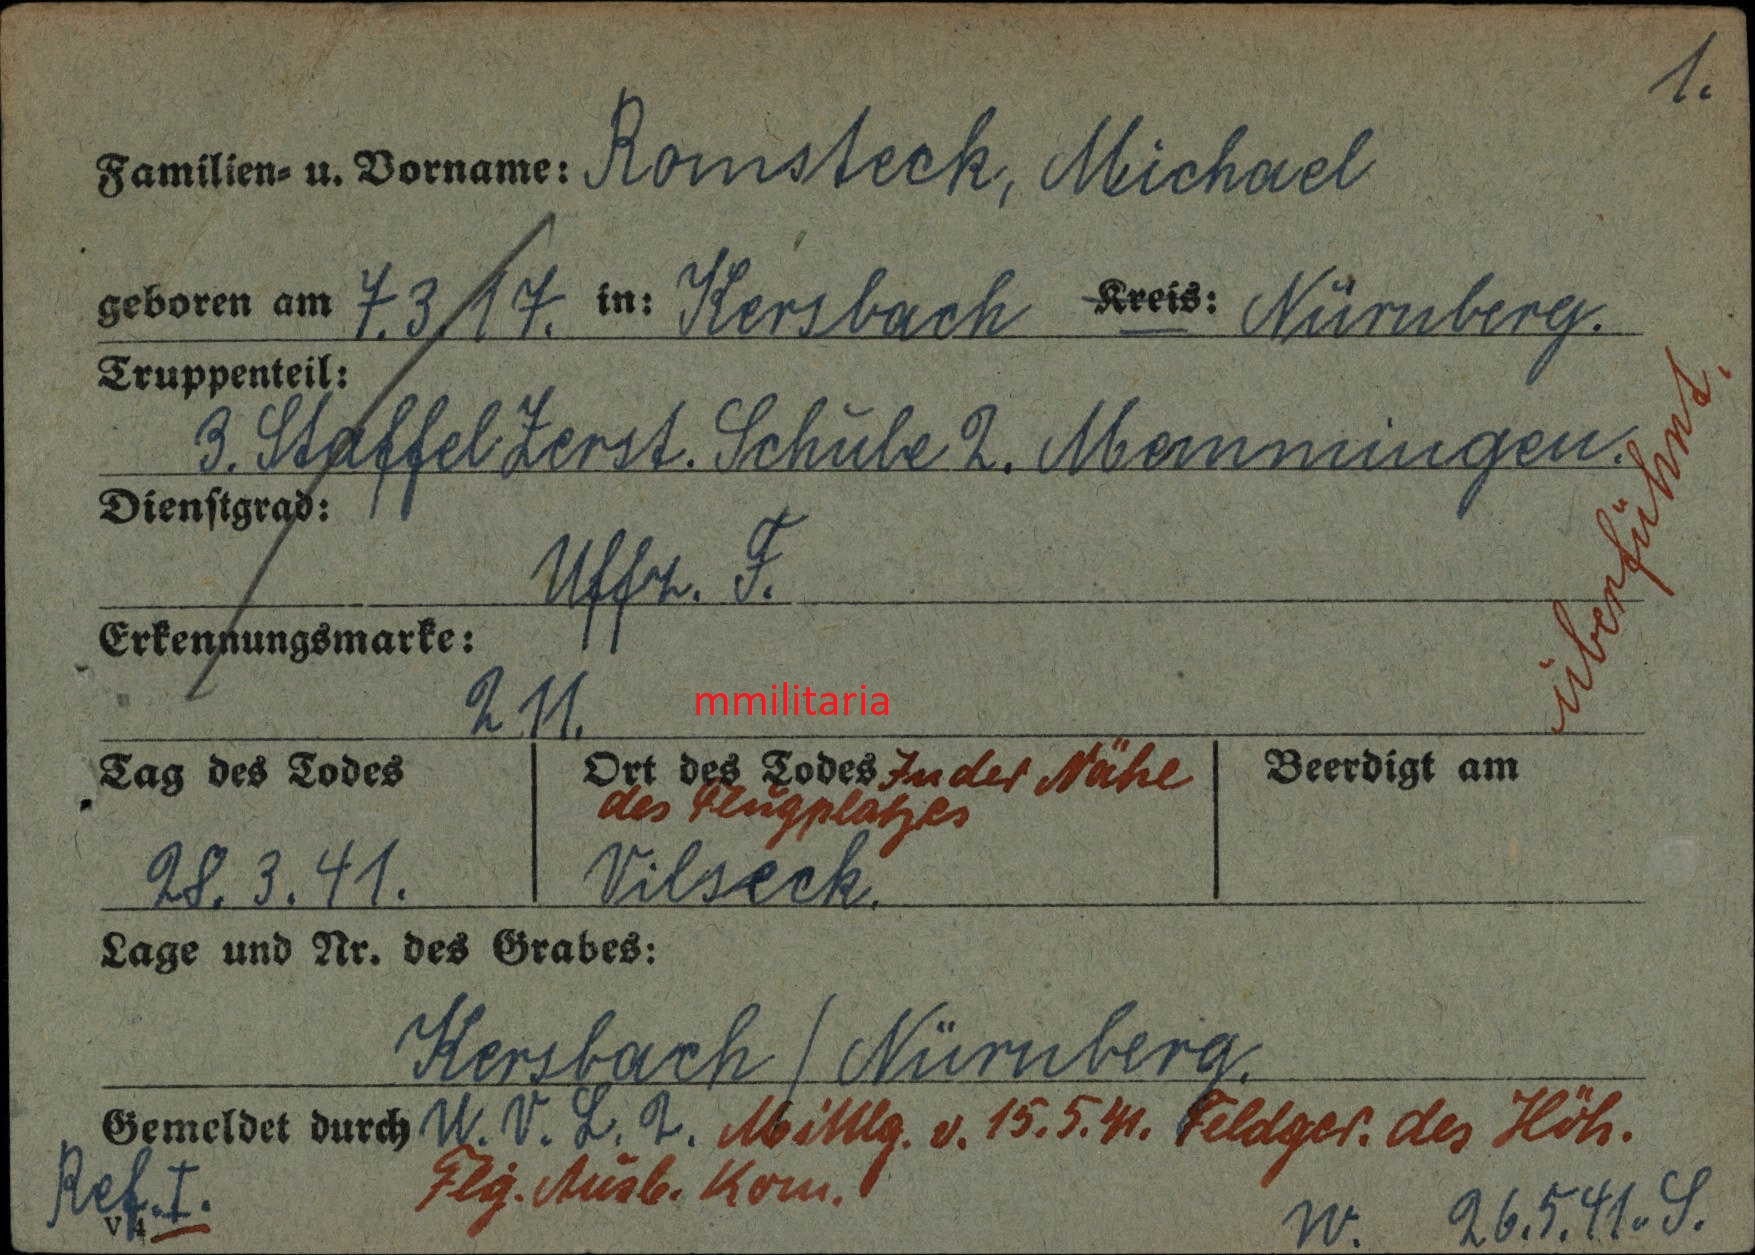 1.
Familien- u. Vorname: Romsteck, Michael
geboren am 7.3.17. in: Kersbach Kreis: Nürnberg.
Truppenteil:
3. Staffel Zerst. Schule 2. Memmingen.
Dienstgrad:
Uffz. F.
Erkennungsmarke:
211.
mmilitaria
überführt.
Tag des Todes
28.3.41.
Ort des Todes In der Nähe
des Flugplatzes
Vilseck.
Beerdigt am
Lage und Nr. des Grabes:
Kersbach / Nürnberg.
Gemeldet durch W. V. L. 2. Mittlg. v. 15.5.41. Feldger. des Höh.
Flg. Ausb. Kom.
Ref. I.
V 4
W. 26.5.41. S.